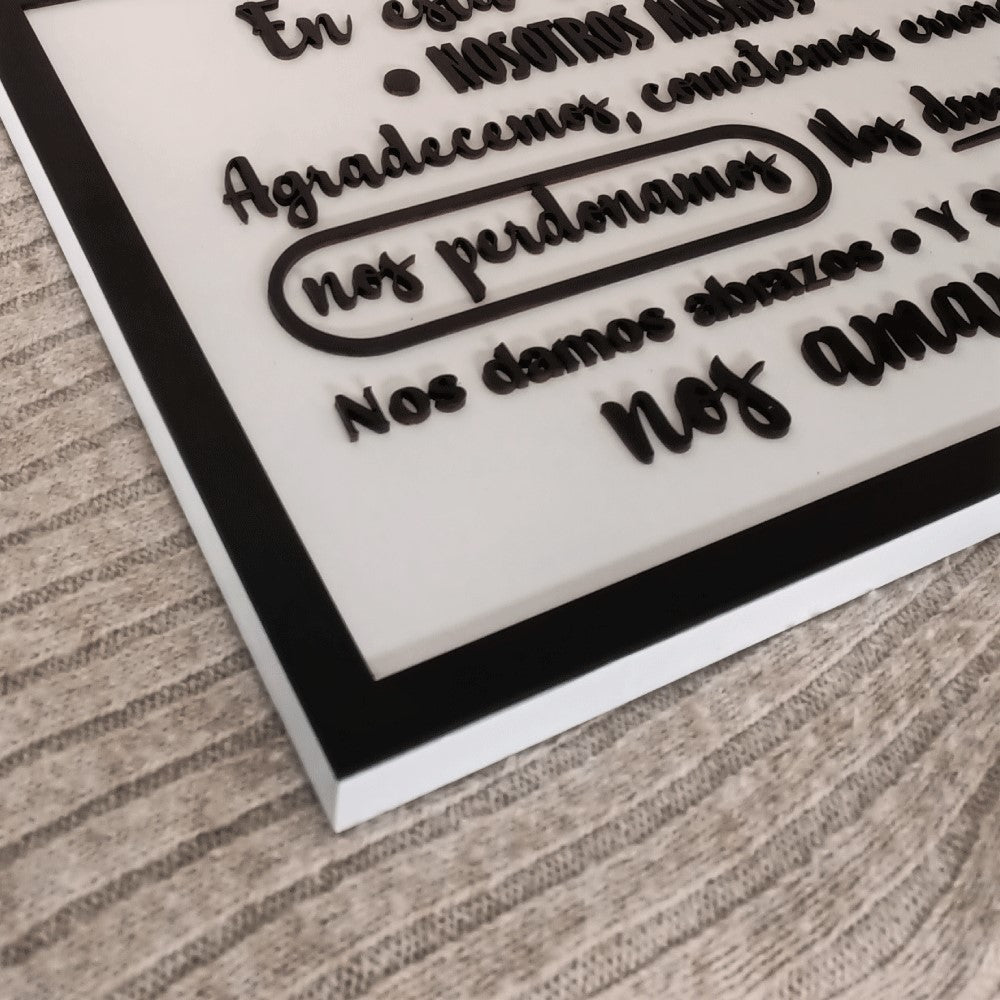 En esta
• NOSOTROS MISMOS
Agradecemos, cometemos
nos perdonamos Nos
Nos damos abrazos • Y
nos